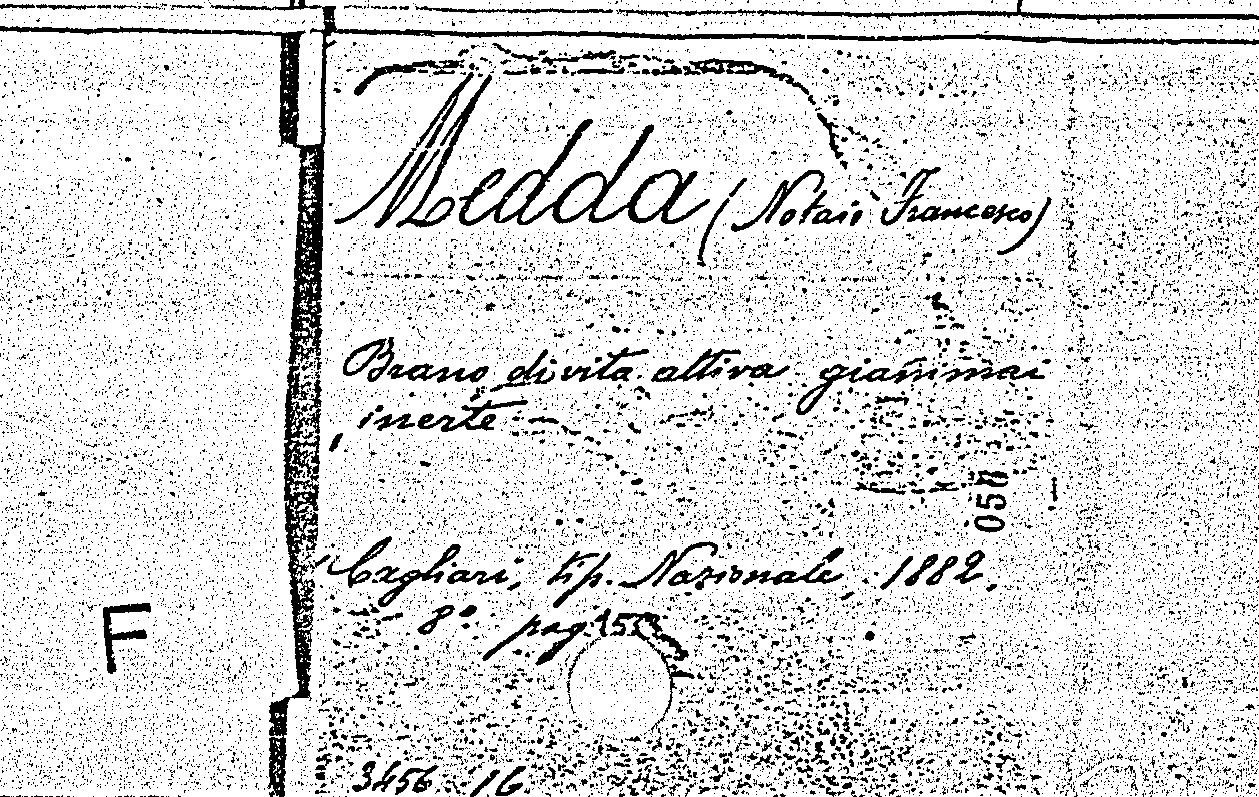 Medda (Notaio Francesco)
Brano di vita attiva giammai
inerte
058
Cagliari, tip. Nazionale 1882.
8º pag.
F
3456. 16